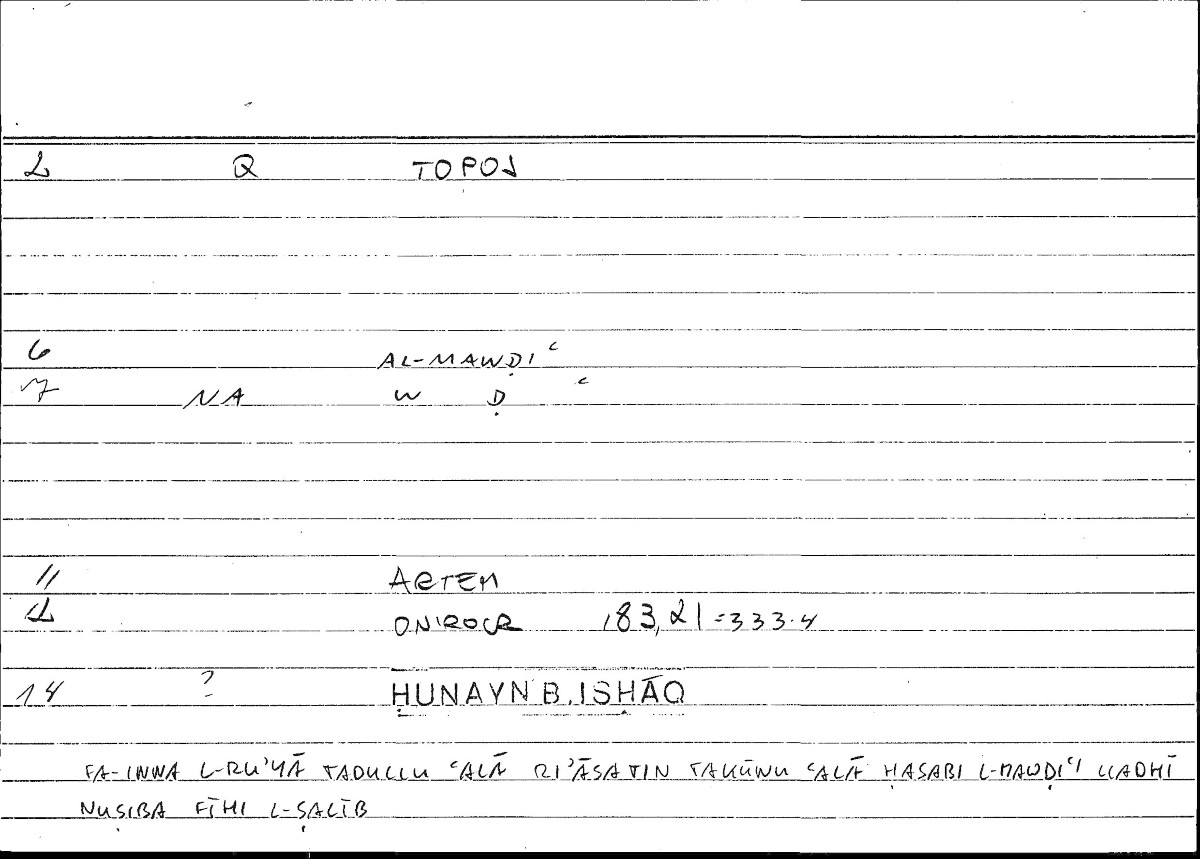 1 Q TOPOS
6 AL-MAWḌIʿ
7 NA W Ḍ ʿ
11 ARTEM
12 ONIROCR 183,21=333.4
14 ? ḤUNAYN B. ISḤĀQ
FA-INNA L-RU'YĀ TADULLU ʿALĀ RI'ĀSATIN TAKŪNU ʿALĀ ḤASABI L-MAWḌIʿI LLADHĪ
NUṢIBA FĪHI L-ṢALĪB